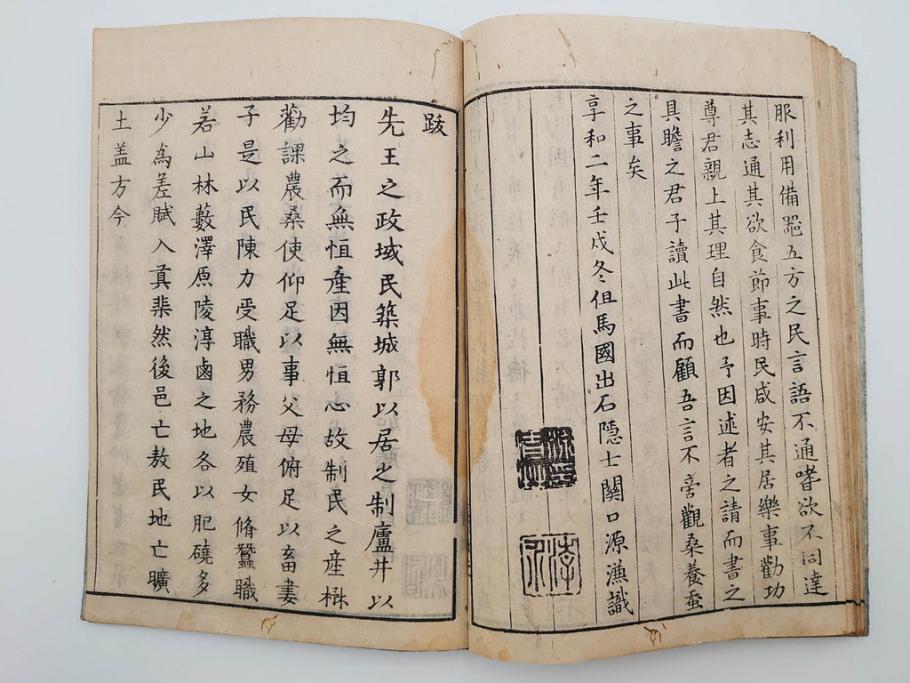 服利用備器五方之民言語不通嗜欲不同達
其志通其欲食節事時民咸安其居樂事勸功
尊君親上其理自然也予因述者之請而書之
具瞻之君子讀此書而顧吾言不旁觀桑養蚕
之事矣
享和二年壬戌冬但馬國出石隱士關口源漁識
跋
先王之政域民築城郭以居之制廬井以
均之而無恒產因無恒心故制民之產楙
勸課農桑使仰足以事父母俯足以畜妻
子是以民陳力受職男務農殖女脩蠶職
若山林藪澤原陵淳鹵之地各以肥磽多
少為差賦入貢棐然後邑亡敖民地亡曠
土盖方今